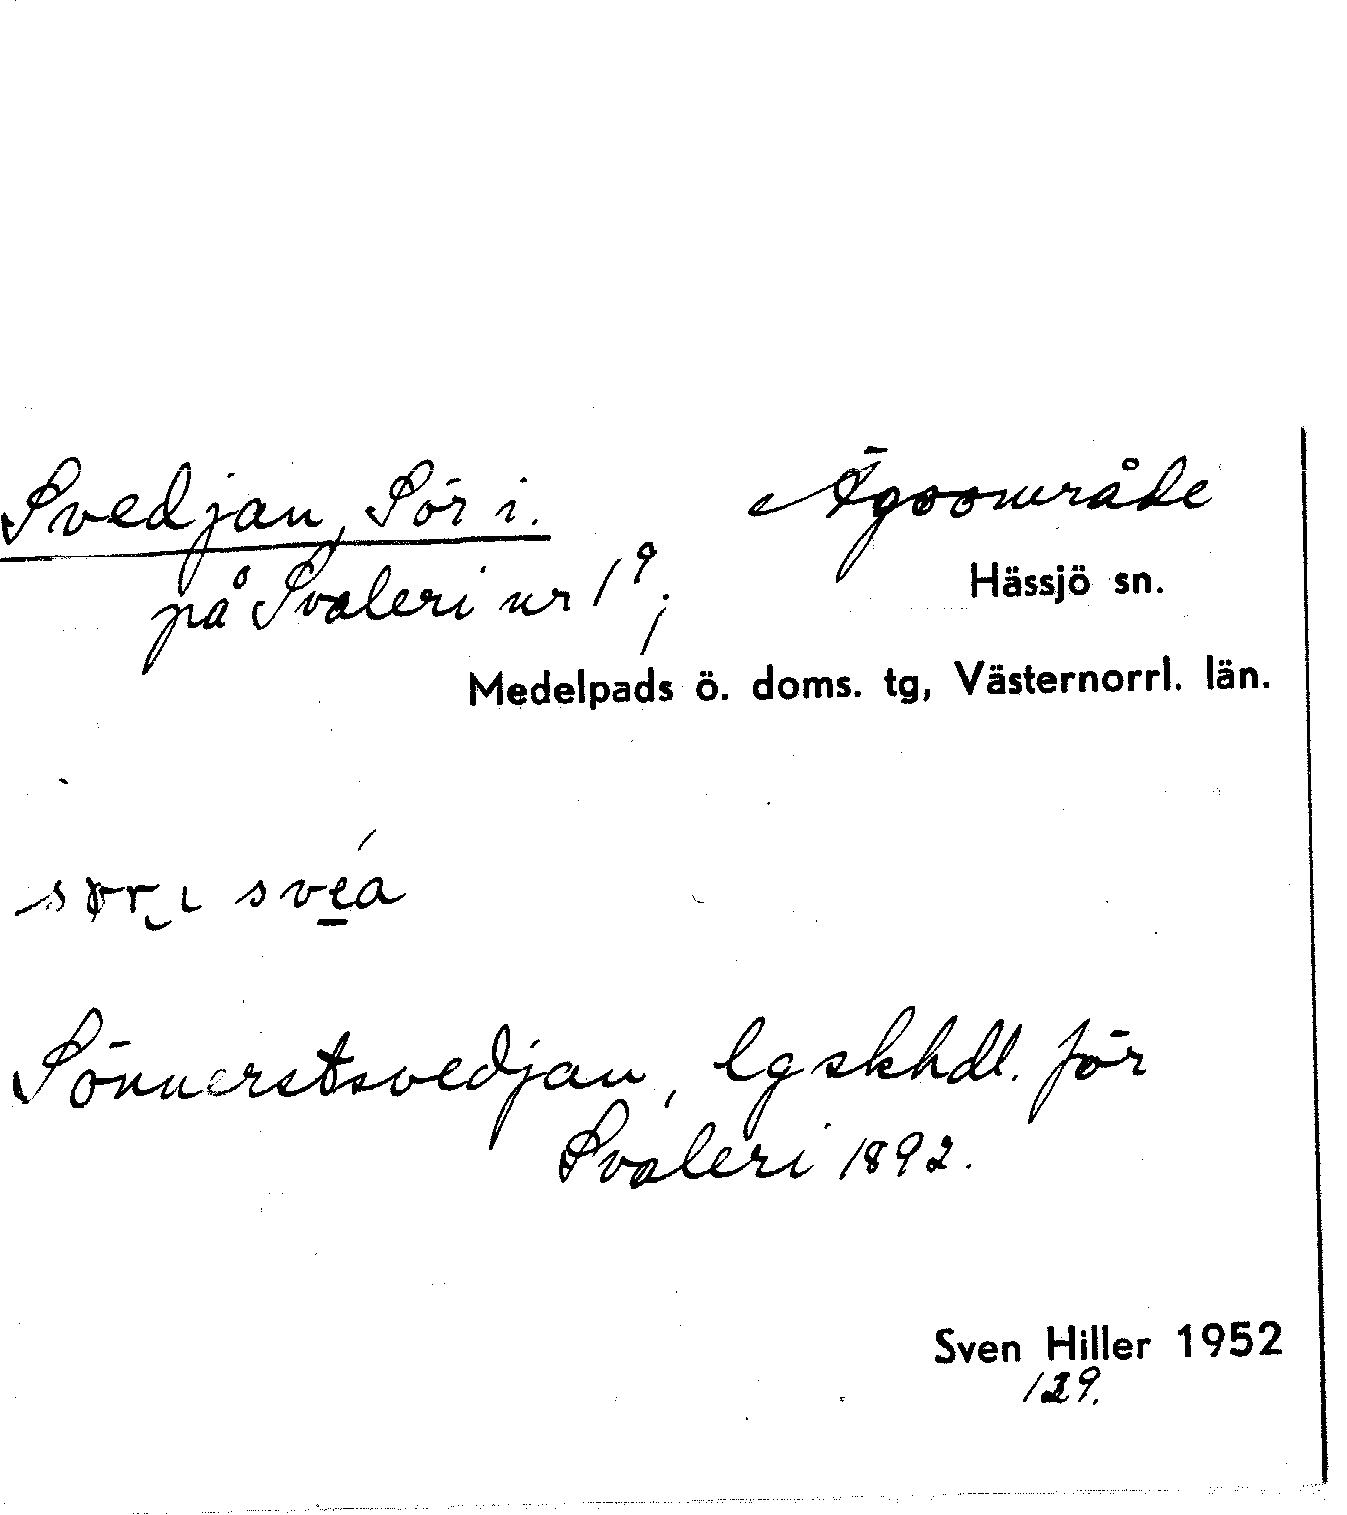 Svedjan, Sör i.
Ägoområde
på Svaleri nr 1⁹;
Hässjö sn.
Medelpads ö. doms. tg, Västernorrl. län.
sør ɩ svéa
Sönnerstsvedjan, lgskhdl. för
Svaleri 1892.
Sven Hiller 1952
129.